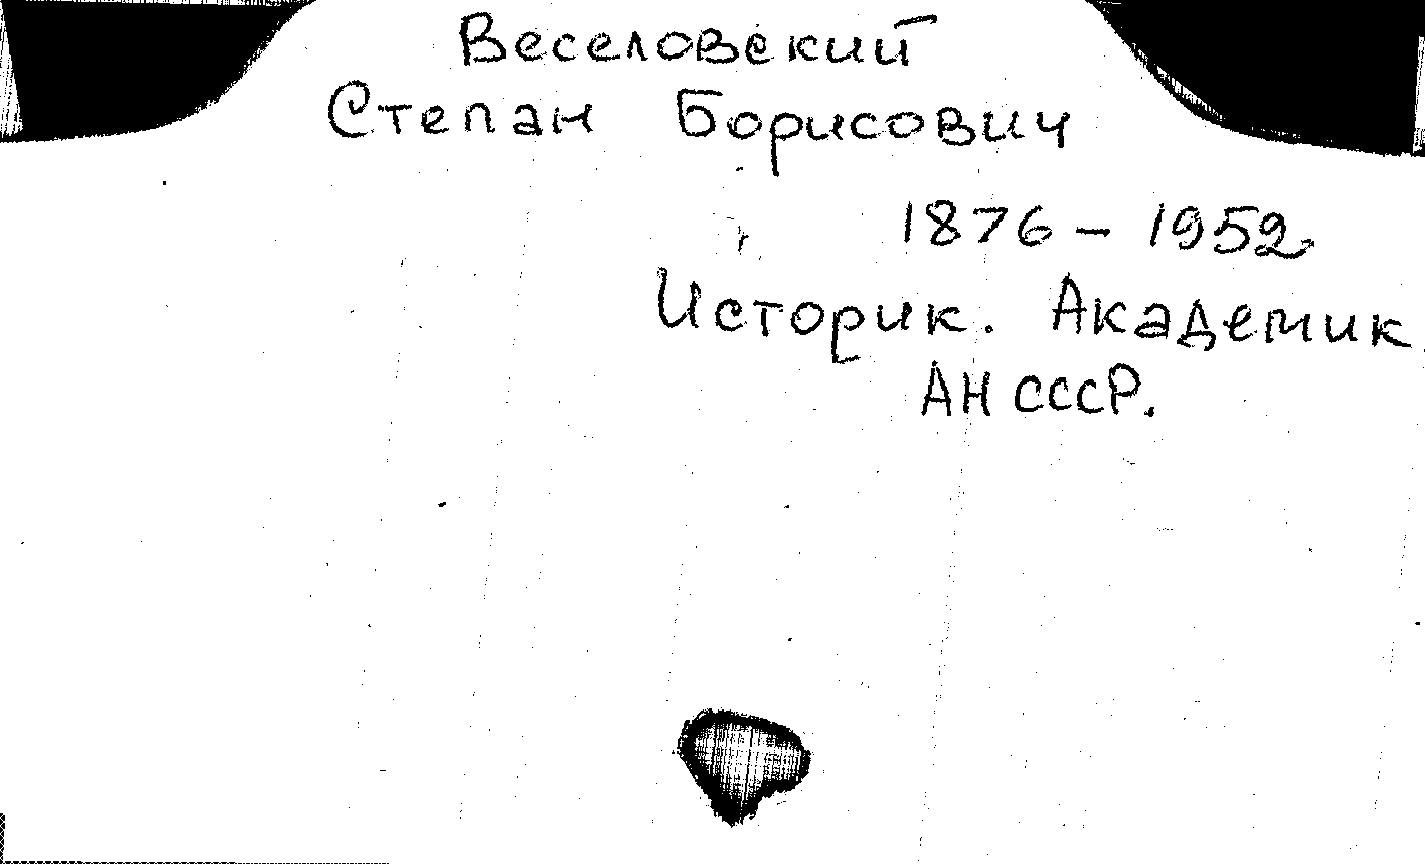 Веселовский
Степан Борисович
1876 - 1952
Историк. Академик
АН СССР.